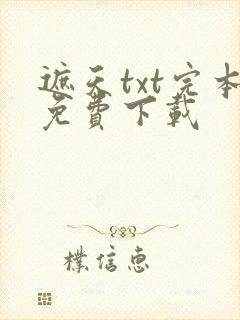 遮天txt完本
免費下載
樸信惠